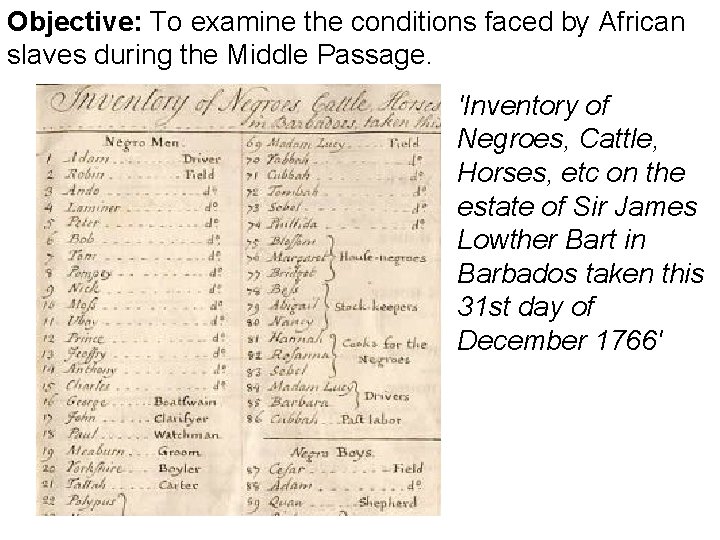 Objective: To examine the conditions faced by African
slaves during the Middle Passage.
Inventory of Negroes, Cattle, Horses
in Barbados, taken this
Negro Men.
1 Adam Driver
2 Robin Field
3 Ando do
4 Laminer do
5 Peter do
6 Bob do
7 Tom do
8 Pompey do
9 Nick do
10 Moss do
11 Ubay do
12 Prince do
13 Geoffry do
14 Anthony do
15 Charles do
16 George Boatswain
17 John Clarifyer
18 Paul Watchman
19 Meaburn Groom
20 Yorkshire Boyler
21 Tallah Carter
22 Polypus
69 Madam Lucy Field
70 Yabbah do
71 Cubbah do
72 Tombah do
73 Sebel do
74 Phillida do
75 Blossom
76 Margaret House-negroes
77 Bridget
78 Bess
79 Abigail Stock-keepers
80 Nancy
81 Hannah
82 Rosanna Cooks for the Negroes
83 Sebel
84 Madam Lucy
85 Barbara Drivers
86 Cubbah Past labor
Negro Boys.
87 Cesar Field
88 Adam do
89 Quan Shepherd
'Inventory of
Negroes, Cattle,
Horses, etc on the
estate of Sir James
Lowther Bart in
Barbados taken this
31st day of
December 1766'